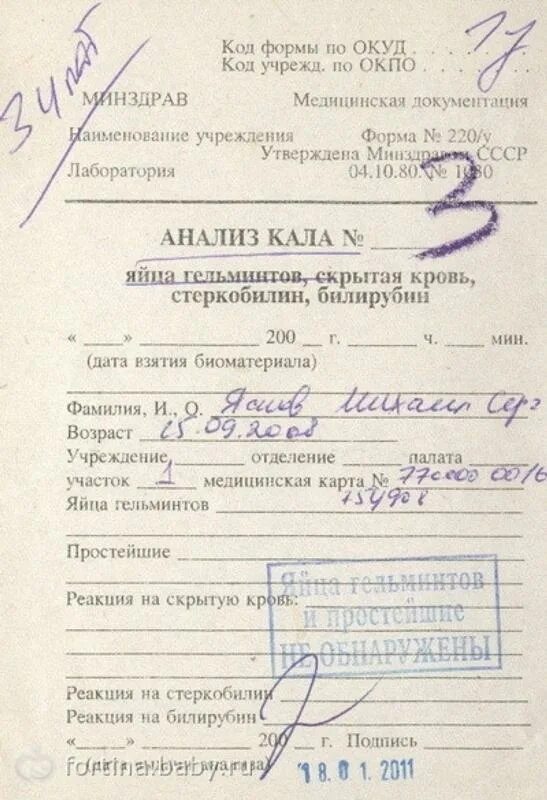 Код формы по ОКУД
Код учрежд. по ОКПО
17
3 ч
МИНЗДРАВ
Медицинская документация
Наименование учреждения
Форма № 220/у
Утверждена Минздравом СССР
Лаборатория
04.10.80. № 1030
3
АНАЛИЗ КАЛА №
яйца гельминтов, скрытая кровь,
стеркобилин, билирубин
« » 200 г. ч. мин.
(дата взятия биоматериала)
Фамилия, И., О. Михаил Серг
Возраст 15.09.2008
Учреждение отделение палата
участок 1 медицинская карта №
Яйца гельминтов
Простейшие
Яйца гельминтов
и простейшие
НЕ ОБНАРУЖЕНЫ
Реакция на скрытую кровь:
Реакция на стеркобилин
Реакция на билирубин
« » 200 г. Подпись
(дата выдачи анализа)
18.01.2011
fortina.baby.ru